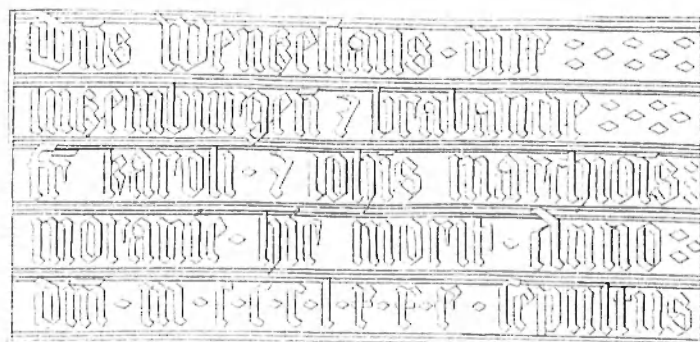 Dns Wenzelaus · dux
luxemburgen ⁊ brabancie
fr karoli · ⁊ iohis marchiois
moravie · hic morit · Anno
dni · m · c · c · c · l · x · x · x · sepultus